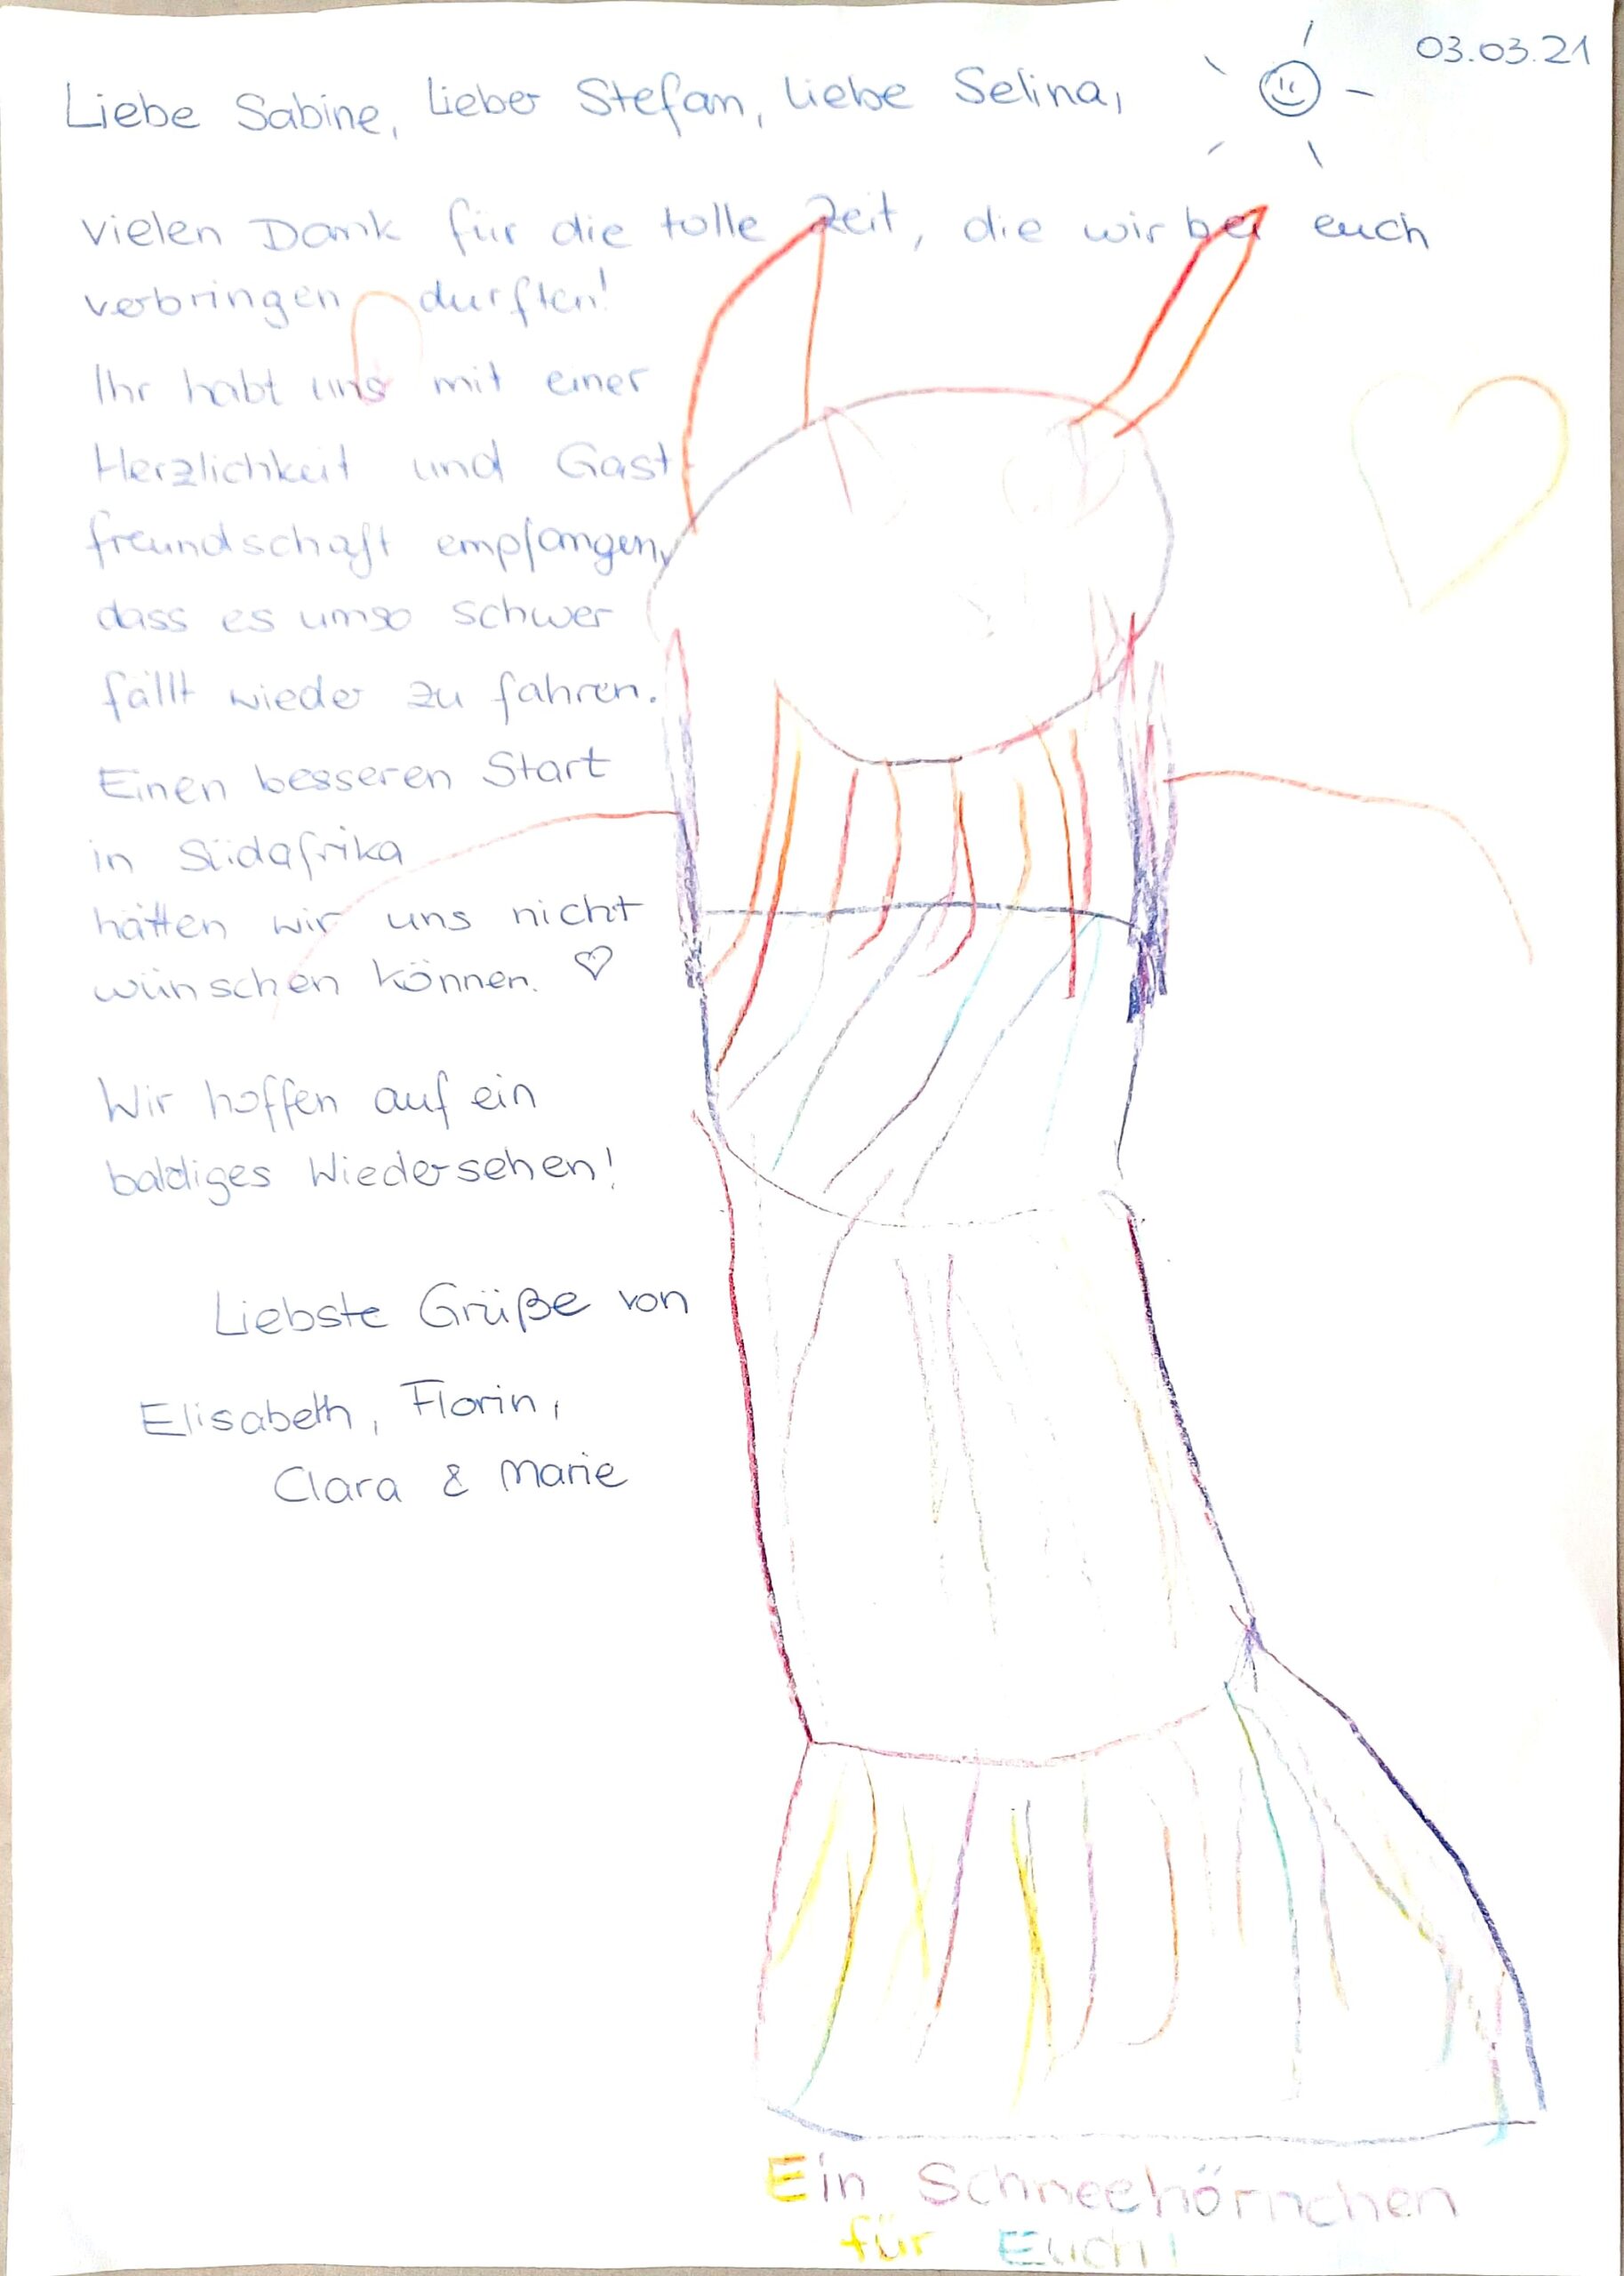 03.03.21
Liebe Sabine, Lieber Stefan, liebe Selina,
vielen Dank für die tolle Zeit, die wir bei euch
verbringen durften!
Ihr habt uns mit einer
Herzlichkeit und Gast-
freundschaft empfangen,
dass es umso schwer
fällt wieder zu fahren.
Einen besseren Start
in Südafrika
hätten wir uns nicht
wünschen können. ♡
Wir hoffen auf ein
baldiges Wiedersehen!
Liebste Grüße von
Elisabeth, Florin,
Clara & Marie
Ein Schneehörnchen
für Euch!